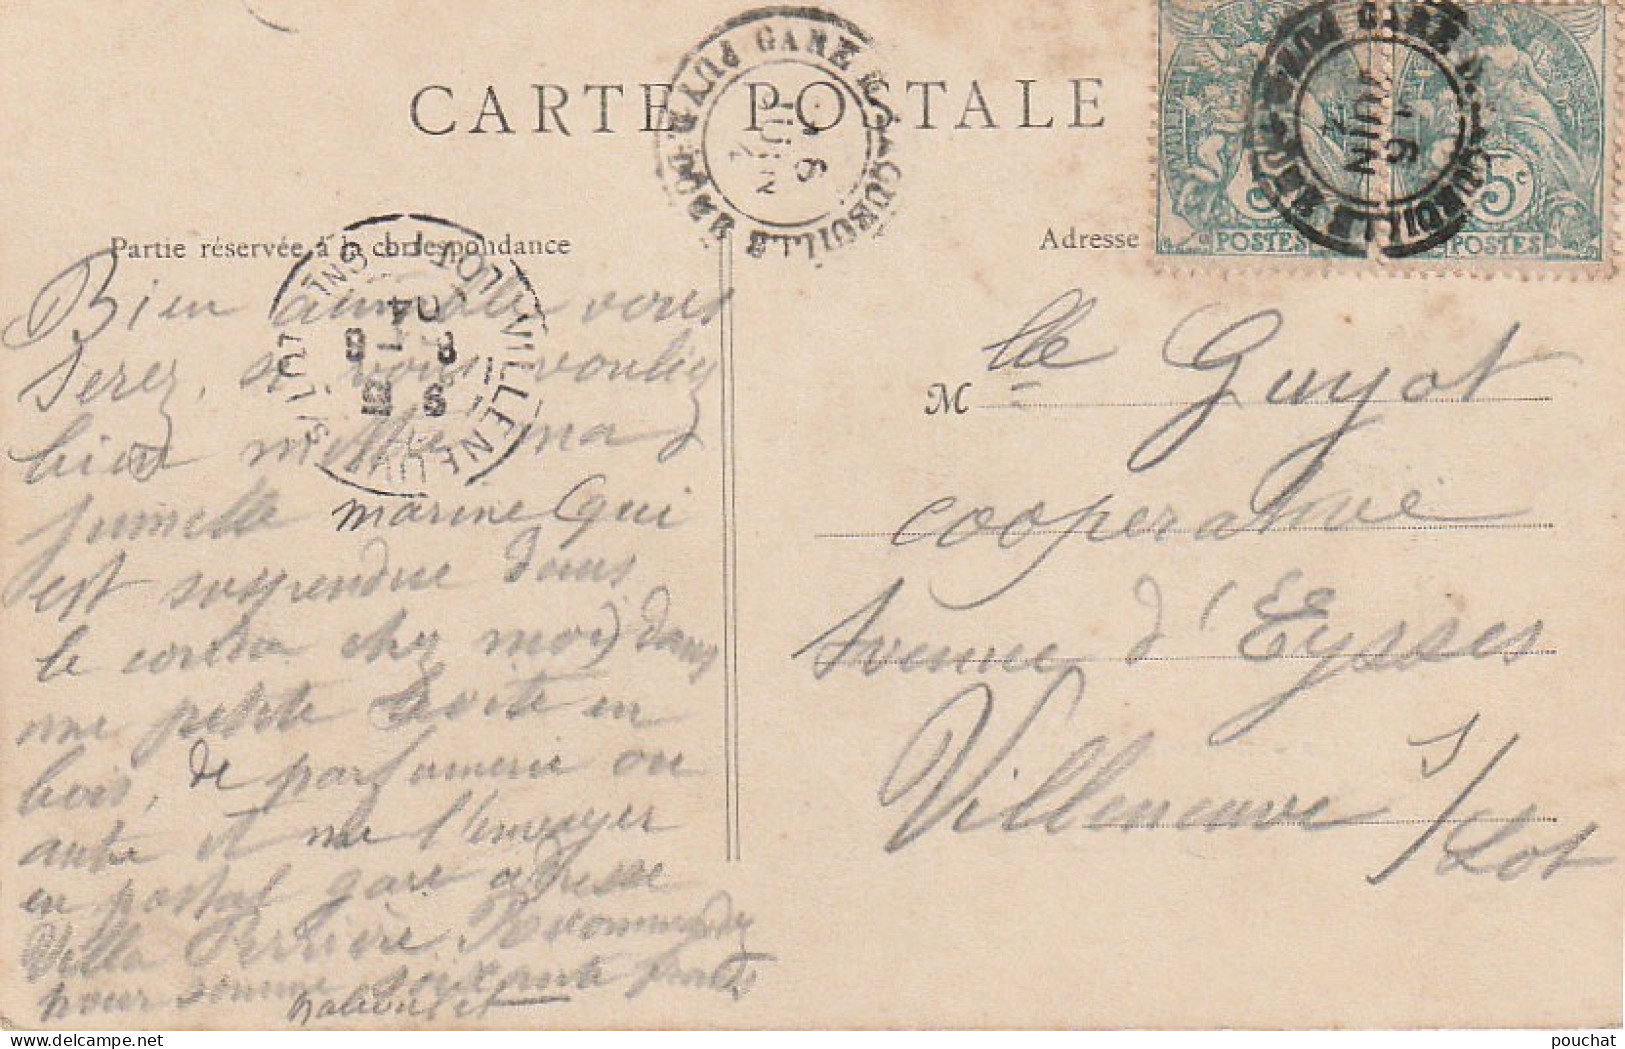 CARTE POSTALE
Partie réservée à la correspondance
Adresse
POSTES
5c POSTES
GARE
JUIN
VILLENEUVE
Bien aimable vous
Serez, si vous vouliez
bien mettre ma
jumelle marine (qui
est suspendue dans
le corridor chez moi) dans
une petite boite en
bois, de parfumerie ou
autre et me l'envoyer
en postal gare adresse
Villa Perrière. Recommandez
pour somme soixante francs
valeur et
Mlle Guyot
cooperative
Avenue d'Eysses
Villeneuve s/Lot
pouchat